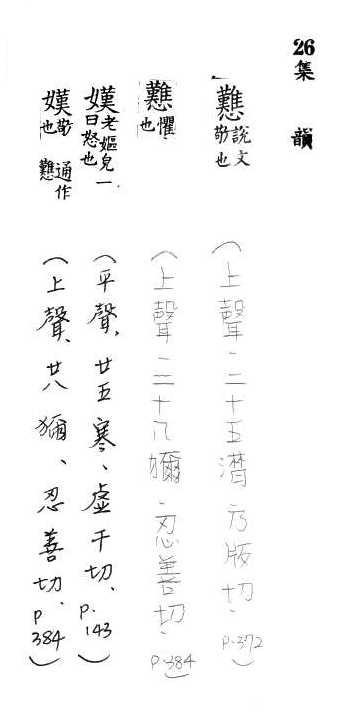 26集韻
戁說文敬也(上聲、二十五潸、乃版切、P.372)
戁懼也(上聲、二十八獮、忍善切、P.384)
㜺老嫗皃一曰怒也(平聲、廿五寒、虛干切、P.143)
㜺敬也通作戁(上聲、廿八獮、忍善切、P.384)